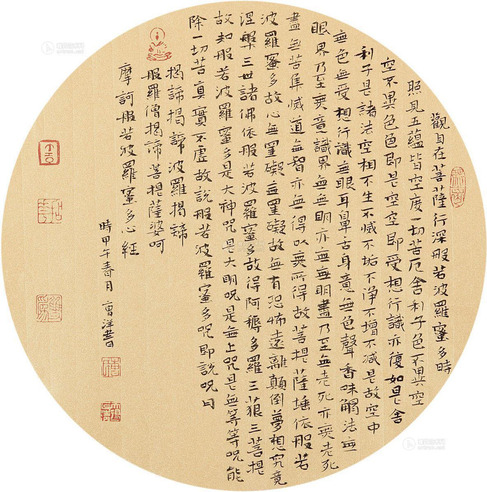 觀自在菩薩行深般若波羅蜜多時
照見五蘊皆空度一切苦厄舍利子色不異空
空不異色色即是空空即是色受想行識亦復如是舍
利子是諸法空相不生不滅不垢不淨不增不減是故空中
無色無受想行識無眼耳鼻舌身意無色聲香味觸法無
眼界乃至無意識界無無明亦無無明盡乃至無老死亦無老死
盡無苦集滅道無智亦無得以無所得故菩提薩埵依般若
波羅蜜多故心無罣礙無罣礙故無有恐怖遠離顛倒夢想究竟
涅槃三世諸佛依般若波羅蜜多故得阿耨多羅三藐三菩提
故知般若波羅蜜多是大神咒是大明咒是無上咒是無等等咒能
除一切苦真實不虛故說般若波羅蜜多咒即說咒曰
揭諦揭諦波羅揭諦
般羅僧揭諦菩提薩婆呵
摩訶般若波羅蜜多心經
時甲午春月